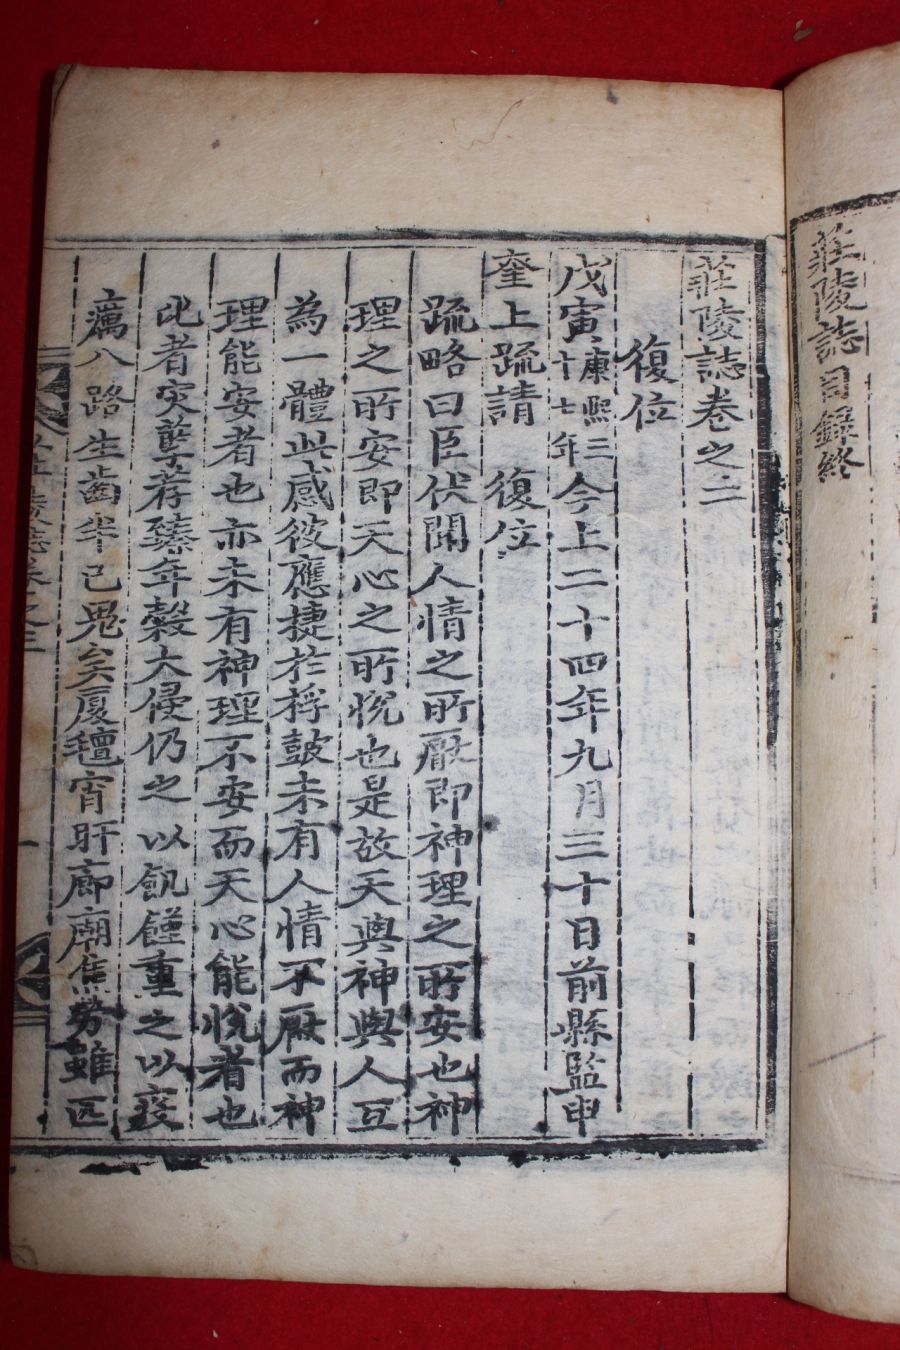 莊陵誌目錄終
莊陵誌卷之二
復位
戊寅康熙三十七年今上二十四年九月三十日前縣監申
奎上疏請 復位
疏略曰臣伏聞人情之所厭即神理之所安也神
理之所安即天心之所悅也是故天與神與人互
為一體此感彼應捷於桴鼓未有人情不厭而神
理能安者也亦未有神理不安而天心能悅者也
此者灾孼荐臻年穀大侵仍之以飢饉重之以疫
癘八路生齒半已鬼矣廈氊宵旰廊廟焦勞雖匹